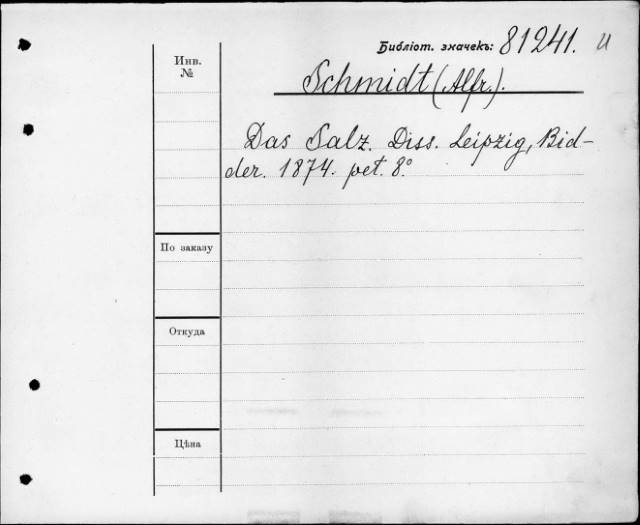 Библіот. значекъ: 81241. И
Инв.
№
Schmidt (Alfr.).
Das Salz. Diss. Leipzig, Bid-
der. 1874. pet. 8°
По заказу
Откуда
Цѣна